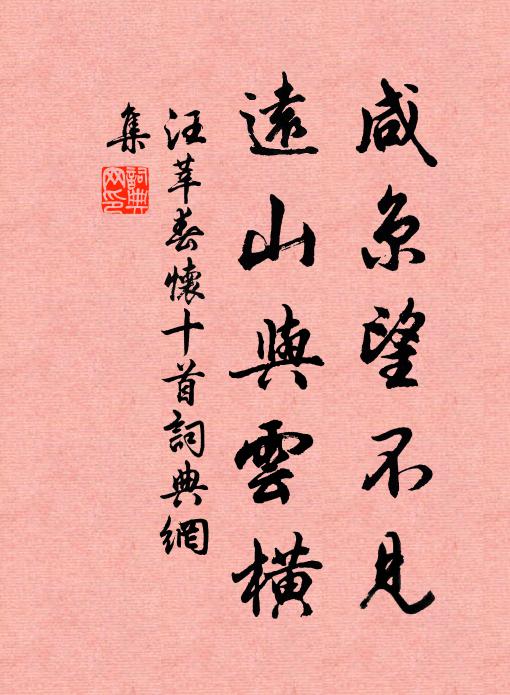 咸京望不見
遠山與雲橫
汪莘春懷十首詞典網
集
詞典網印